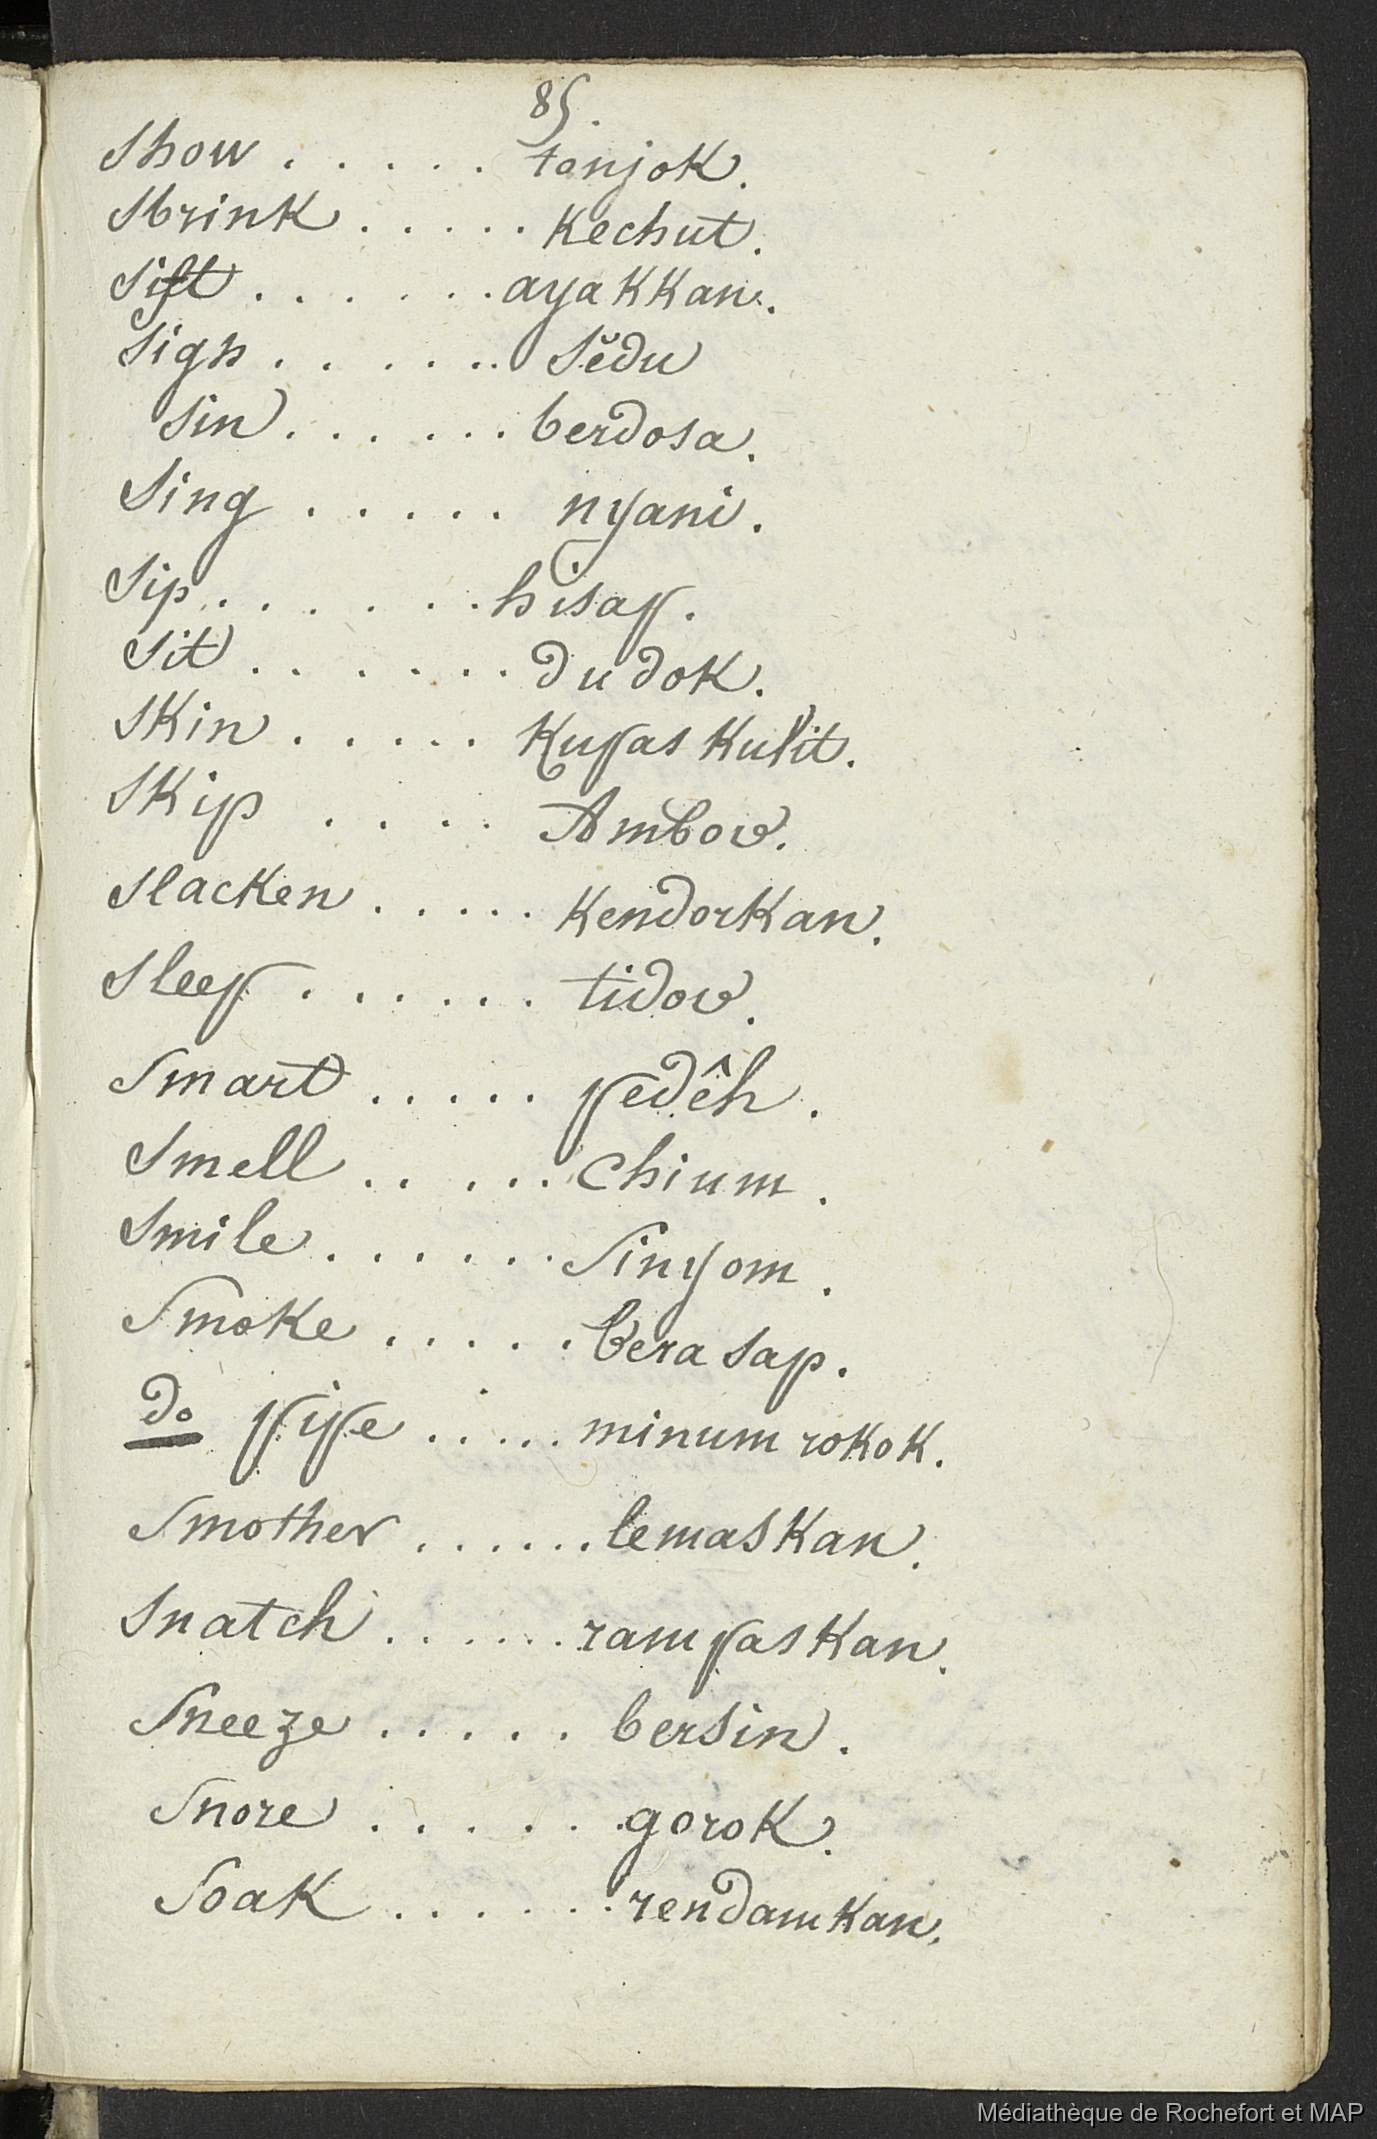 85.
Show . . . . . tonjok.
Shrink . . . . . Kechut.
Sift . . . . . . ayakkan.
Sigh . . . . . . Sĕdu
Sin . . . . . . berdosa.
Sing . . . . . nyani.
Sip . . . . . . hisap.
Sit . . . . . . dudok.
Skin . . . . . Kupas Kulit.
Skip . . . . Ambov.
Slacken . . . . . Kendorkan.
Sleep . . . . . . tidov.
Smart . . . . . pedêh.
Smell . . . . . Chium.
Smile . . . . . . Sinyom.
Smoke . . . . . berasap.
do pipe . . . . . minum rokok.
Smother . . . . . . lemaskan.
Snatch . . . . . . rampaskan.
Sneeze . . . . . bersin.
Snore . . . . . . gorok.
Soak . . . . . . rendamkan.
Médiathèque de Rochefort et MAP